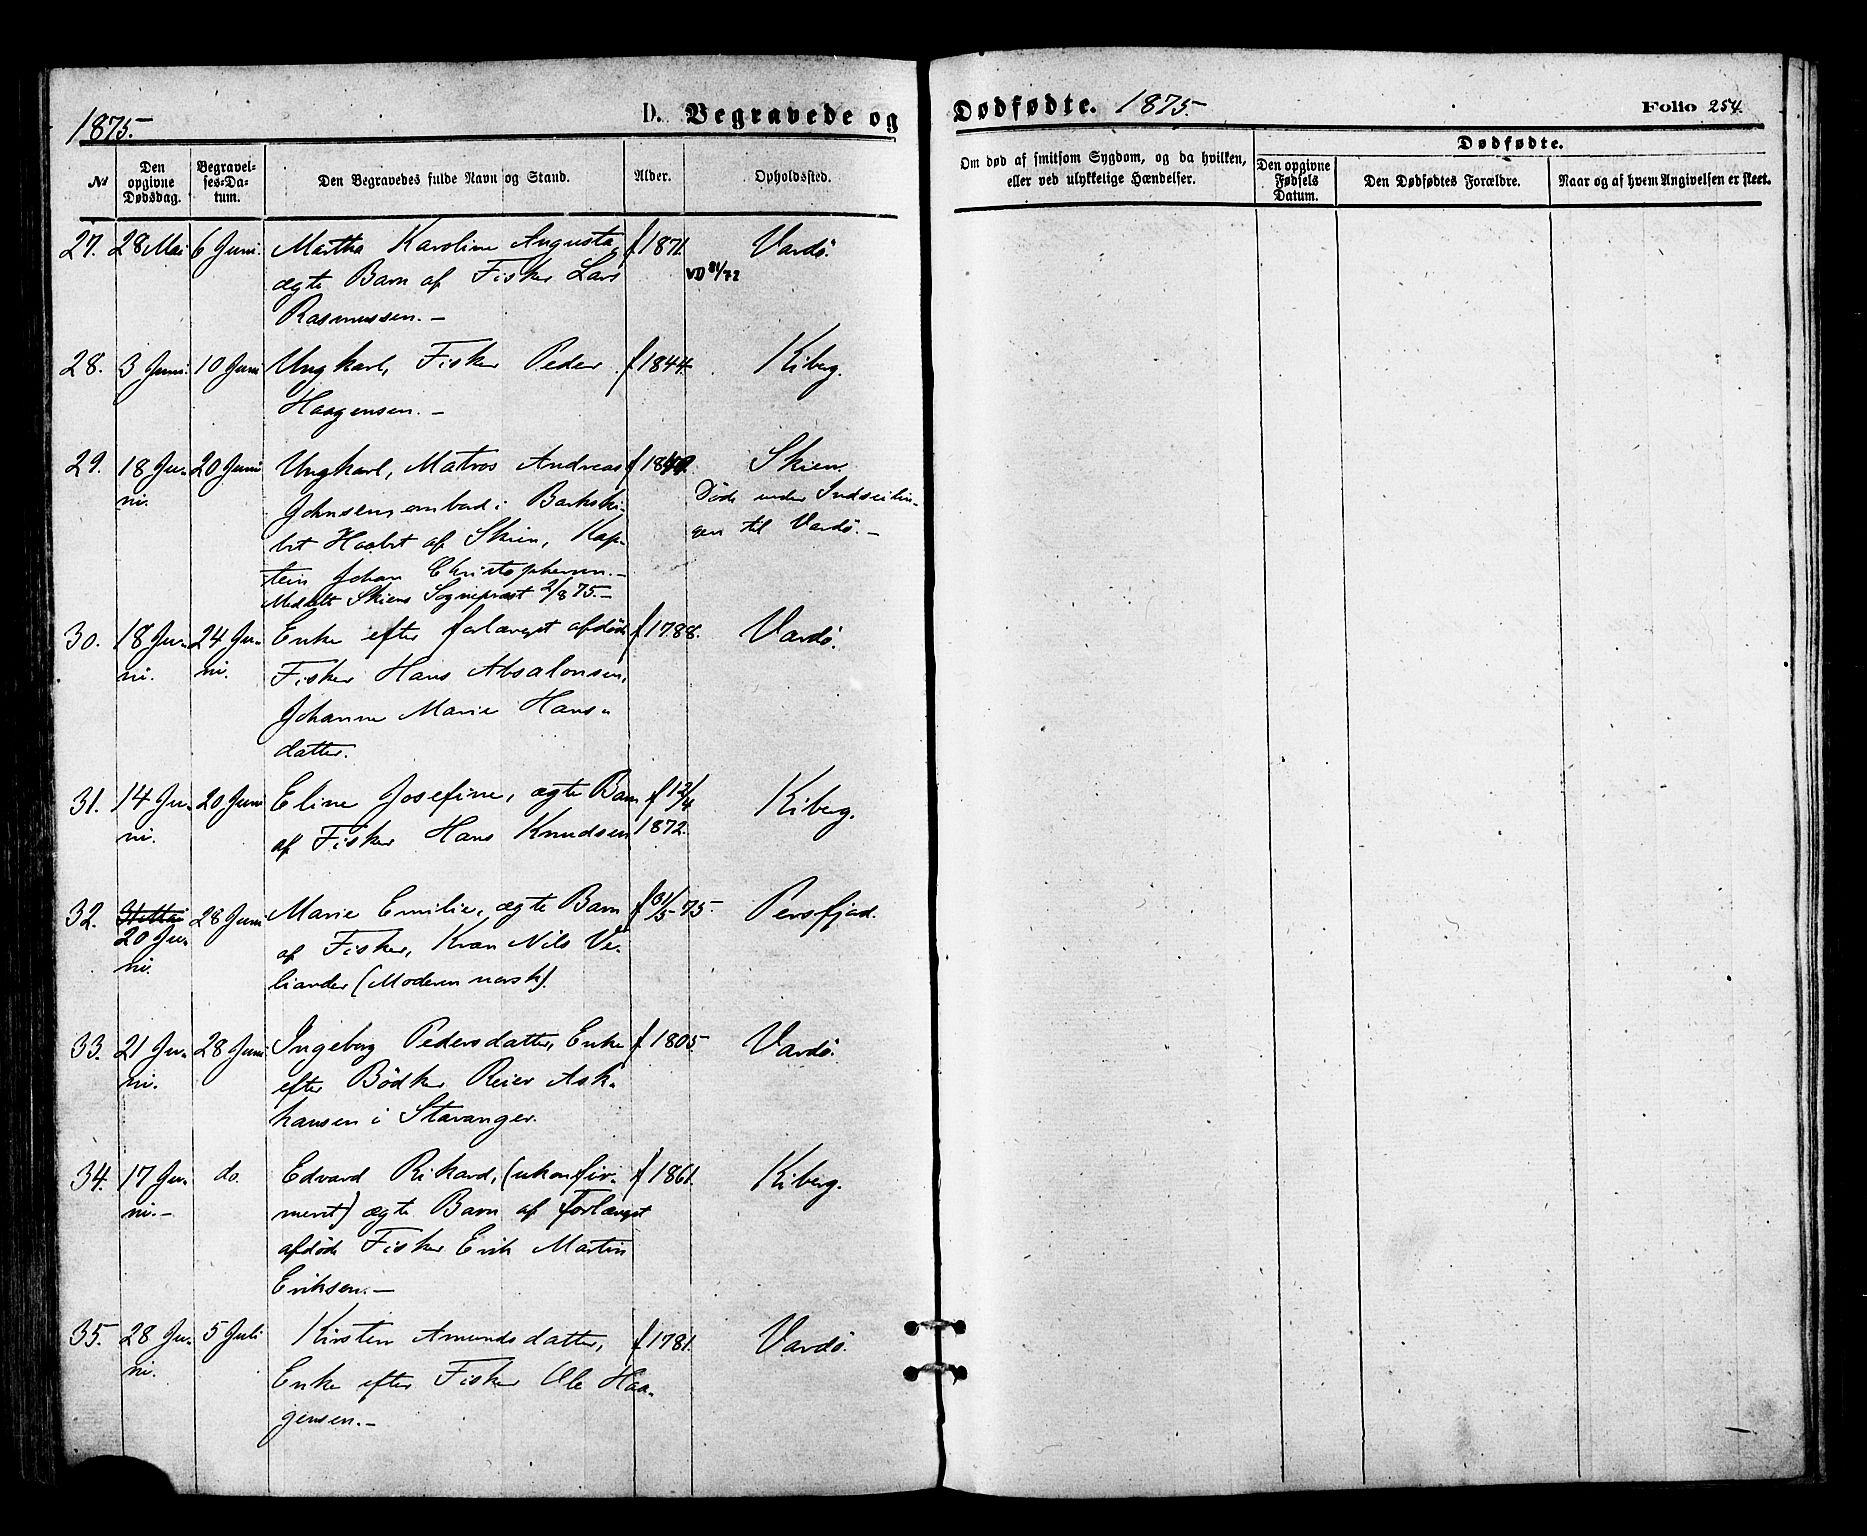 1875.
D. Begravede og
No
Den opgivne Dødsdag.
Begravelses-Datum.
Den Begravedes fulde Navn og Stand.
Alder.
Opholdssted.
27. 28 Mai 6 Juni. Martha Karoline Augusta, f 1871. Vardö.
ægte Barn af Fisker Lars
Rasmussen. –
28. 3 Juni. 10 Juni Ungkarl, Fisker Peder f 1844. Kiberg.
Haagensen. –
29. 18 Ju- 20 Juni Ungkarl, Matros Andreas Skien.
ni. Johnsen, ombord i Barkski- Döde under Indseilin-
bet Haabet af Skien, Kap- gen til Vardö. –
tein Johan Christophersen. –
Meddelt Skiens Sognepræst 2/8 75. –
30. 18 Ju- 24 Ju- Enke efter forlængst afdöde f 1788. Vardö.
ni. ni. Fisker Hans Absalonsen,
Johanne Marie Hans-
datter.
31. 14 Ju- 20 Juni Eline Josefine, ægte Barn f 12/4 Kiberg.
ni. af Fisker Hans Knudsen 1872.
32. 28 Juni Marie Emilie, ægte Barn f 31/5 75. Persfjord.
20 Ju- af Fisker, Kvæn Nils Ve-
ni. liander (Moderen norsk).
33. 21 Ju- 28 Juni Ingeborg Pedersdatter, Enke f. 1805. Vardö.
ni. efter Bödker Reier Ask-
hausen i Stavanger.
34. 17 Ju- do. Edvard Rikard, (ukonfir- f 1861. Kiberg.
ni. – meret) ægte Barn af forlængst
afdöde Fisker Erik Martin
Eriksen. –
35. 28 Ju- 5 Juli Kirsten Amundsdatter, f 1781. Vardö.
ni. Enke efter Fisker Ole Haa-
gensen. –
Dødfødte. 1875.
Folio 254.
Om død af smitsom Sygdom, og da hvilken,
eller ved ulykkelige Hændelser.
Dødfødte.
Den opgivne Fødsels Datum.
Den Dødfødtes Forældre.
Naar og af hvem Angivelsen er skeet.